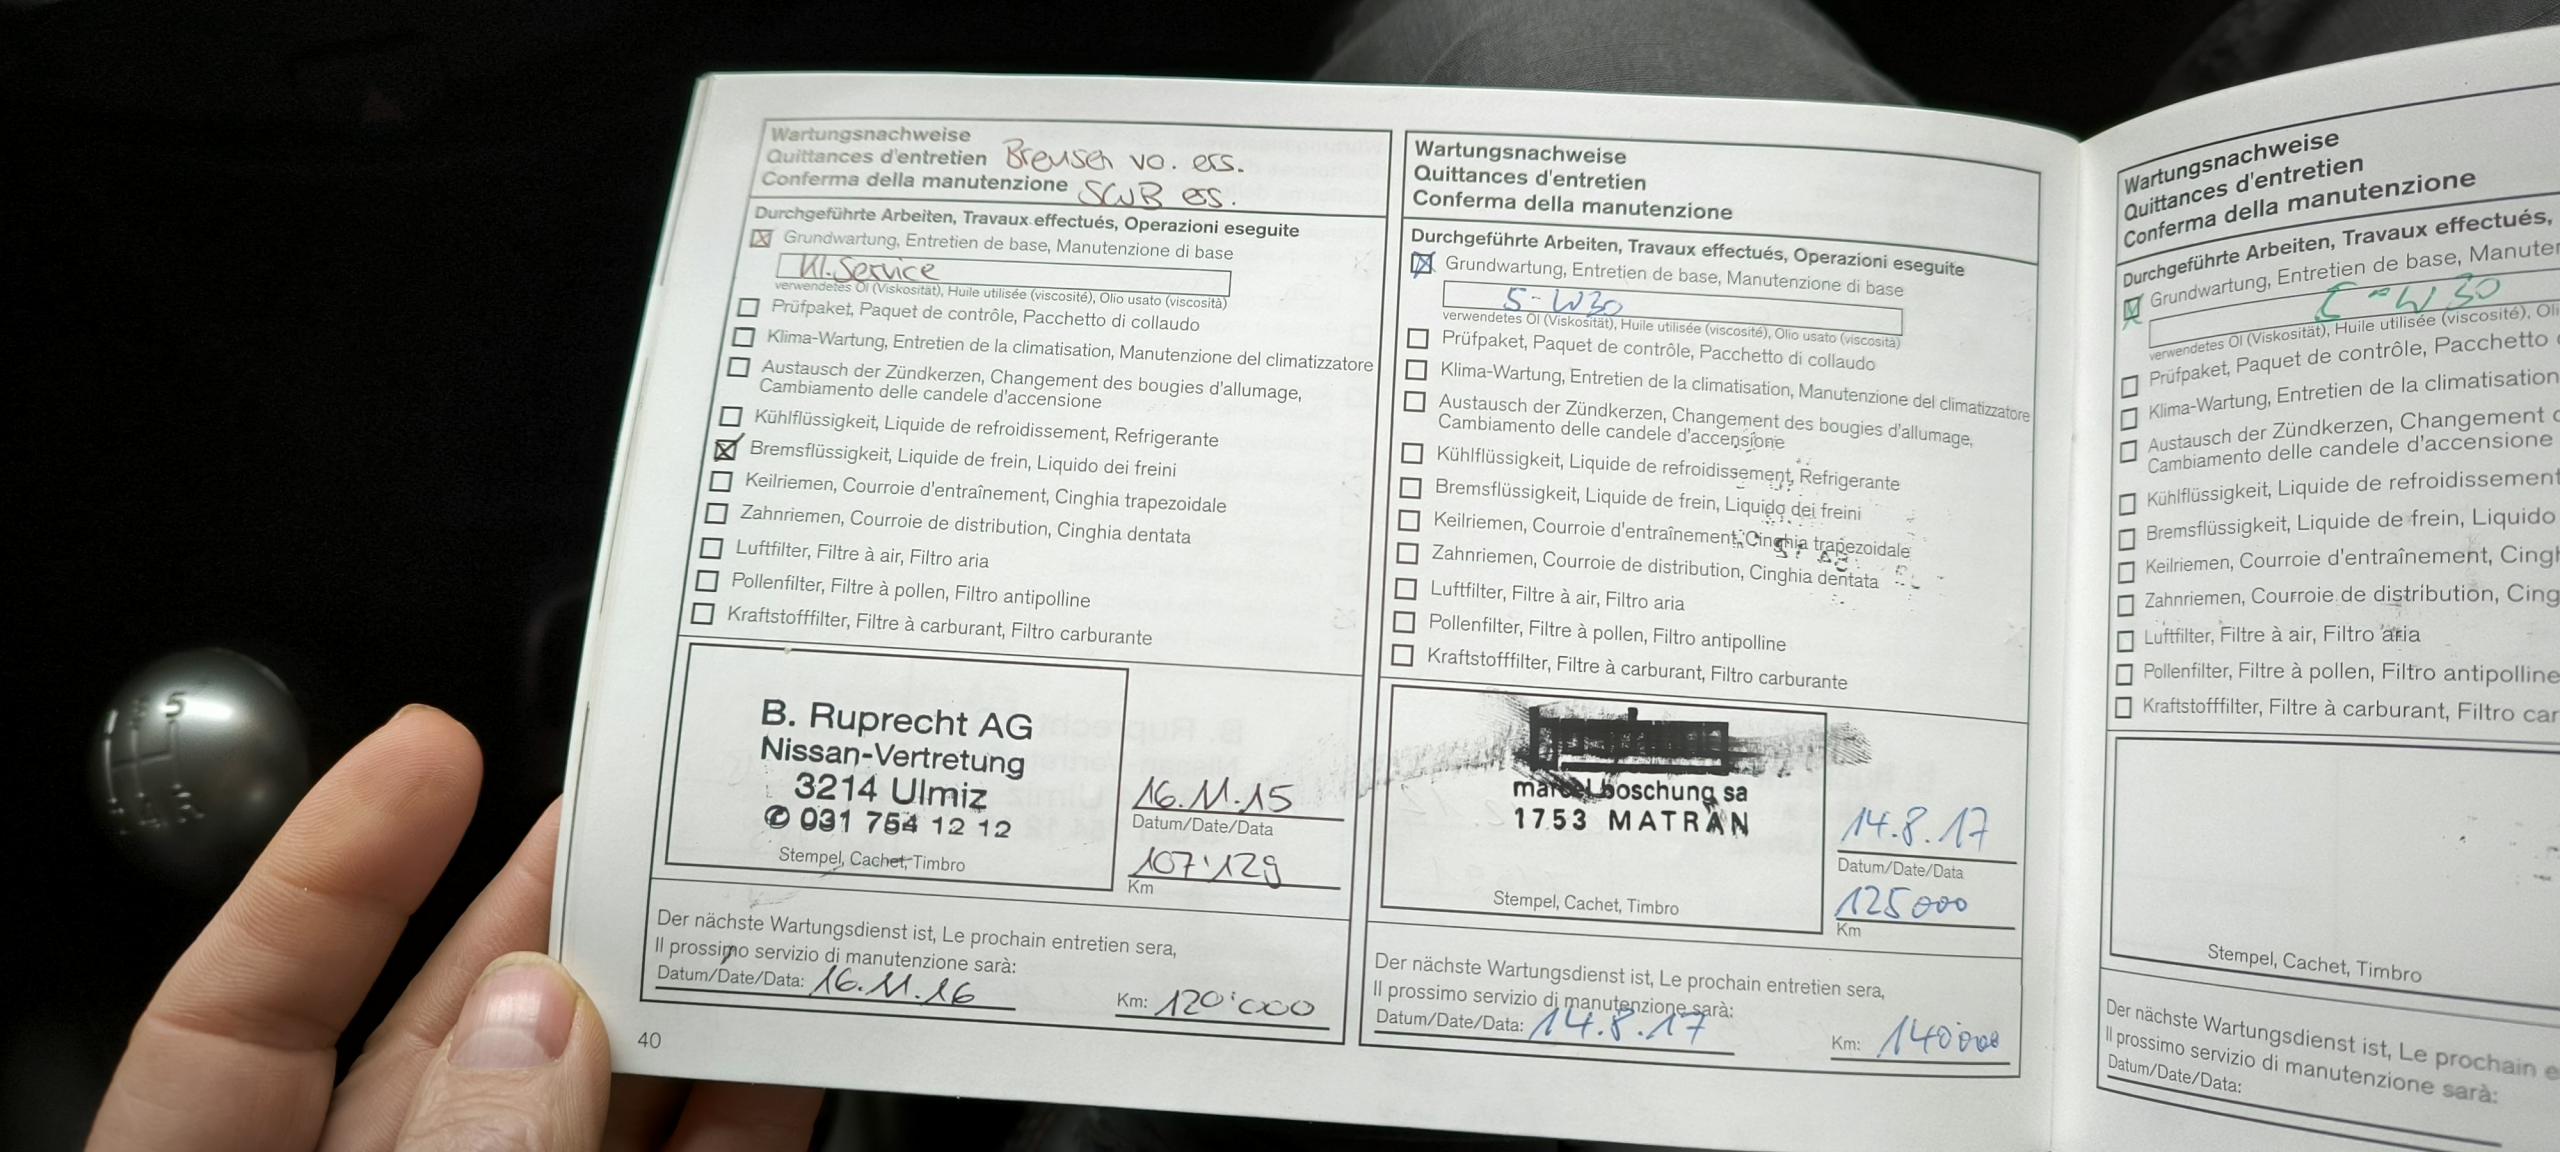 Wartungsnachweise
Quittances d'entretien
Conferma della manutenzione
Bremsen vo. ers.
SWB ers.
Durchgeführte Arbeiten, Travaux effectués, Operazioni eseguite
Grundwartung, Entretien de base, Manutenzione di base
Kl. Service
verwendetes Öl (Viskosität), Huile utilisée (viscosité), Olio usato (viscosità)
Prüfpaket, Paquet de contrôle, Pacchetto di collaudo
Klima-Wartung, Entretien de la climatisation, Manutenzione del climatizzatore
Austausch der Zündkerzen, Changement des bougies d'allumage,
Cambiamento delle candele d'accensione
Kühlflüssigkeit, Liquide de refroidissement, Refrigerante
Bremsflüssigkeit, Liquide de frein, Liquido dei freini
Keilriemen, Courroie d'entraînement, Cinghia trapezoidale
Zahnriemen, Courroie de distribution, Cinghia dentata
Luftfilter, Filtre à air, Filtro aria
Pollenfilter, Filtre à pollen, Filtro antipolline
Kraftstofffilter, Filtre à carburant, Filtro carburante
B. Ruprecht AG
Nissan-Vertretung
3214 Ulmiz
✆ 031 754 12 12
Stempel, Cachet, Timbro
16.11.15
Datum/Date/Data
107'129
Km
Der nächste Wartungsdienst ist, Le prochain entretien sera,
Il prossimo servizio di manutenzione sarà:
Datum/Date/Data: 16.11.16
Km: 120'000
40
Wartungsnachweise
Quittances d'entretien
Conferma della manutenzione
Durchgeführte Arbeiten, Travaux effectués, Operazioni eseguite
Grundwartung, Entretien de base, Manutenzione di base
5-W30
verwendetes Öl (Viskosität), Huile utilisée (viscosité), Olio usato (viscosità)
Prüfpaket, Paquet de contrôle, Pacchetto di collaudo
Klima-Wartung, Entretien de la climatisation, Manutenzione del climatizzatore
Austausch der Zündkerzen, Changement des bougies d'allumage,
Cambiamento delle candele d'accensione
Kühlflüssigkeit, Liquide de refroidissement, Refrigerante
Bremsflüssigkeit, Liquide de frein, Liquido dei freini
Keilriemen, Courroie d'entraînement, Cinghia trapezoidale
Zahnriemen, Courroie de distribution, Cinghia dentata
Luftfilter, Filtre à air, Filtro aria
Pollenfilter, Filtre à pollen, Filtro antipolline
Kraftstofffilter, Filtre à carburant, Filtro carburante
marcel boschung sa
1753 MATRAN
Stempel, Cachet, Timbro
14.8.17
Datum/Date/Data
125000
Km
Der nächste Wartungsdienst ist, Le prochain entretien sera,
Il prossimo servizio di manutenzione sarà:
Datum/Date/Data: 14.8.17
Km: 140'000
Wartungsnachweise
Quittances d'entretien
Conferma della manutenzione
Durchgeführte Arbeiten, Travaux effectués,
Grundwartung, Entretien de base, Manuten
5-W30
verwendetes Öl (Viskosität), Huile utilisée (viscosité), Oli
Prüfpaket, Paquet de contrôle, Pacchetto
Klima-Wartung, Entretien de la climatisation
Austausch der Zündkerzen, Changement
Cambiamento delle candele d'accensione
Kühlflüssigkeit, Liquide de refroidissement
Bremsflüssigkeit, Liquide de frein, Liquido
Keilriemen, Courroie d'entraînement, Cingh
Zahnriemen, Courroie de distribution, Cing
Luftfilter, Filtre à air, Filtro aria
Pollenfilter, Filtre à pollen, Filtro antipolline
Kraftstofffilter, Filtre à carburant, Filtro car
Stempel, Cachet, Timbro
Der nächste Wartungsdienst ist, Le prochain e
Il prossimo servizio di manutenzione sarà:
Datum/Date/Data:
5
R